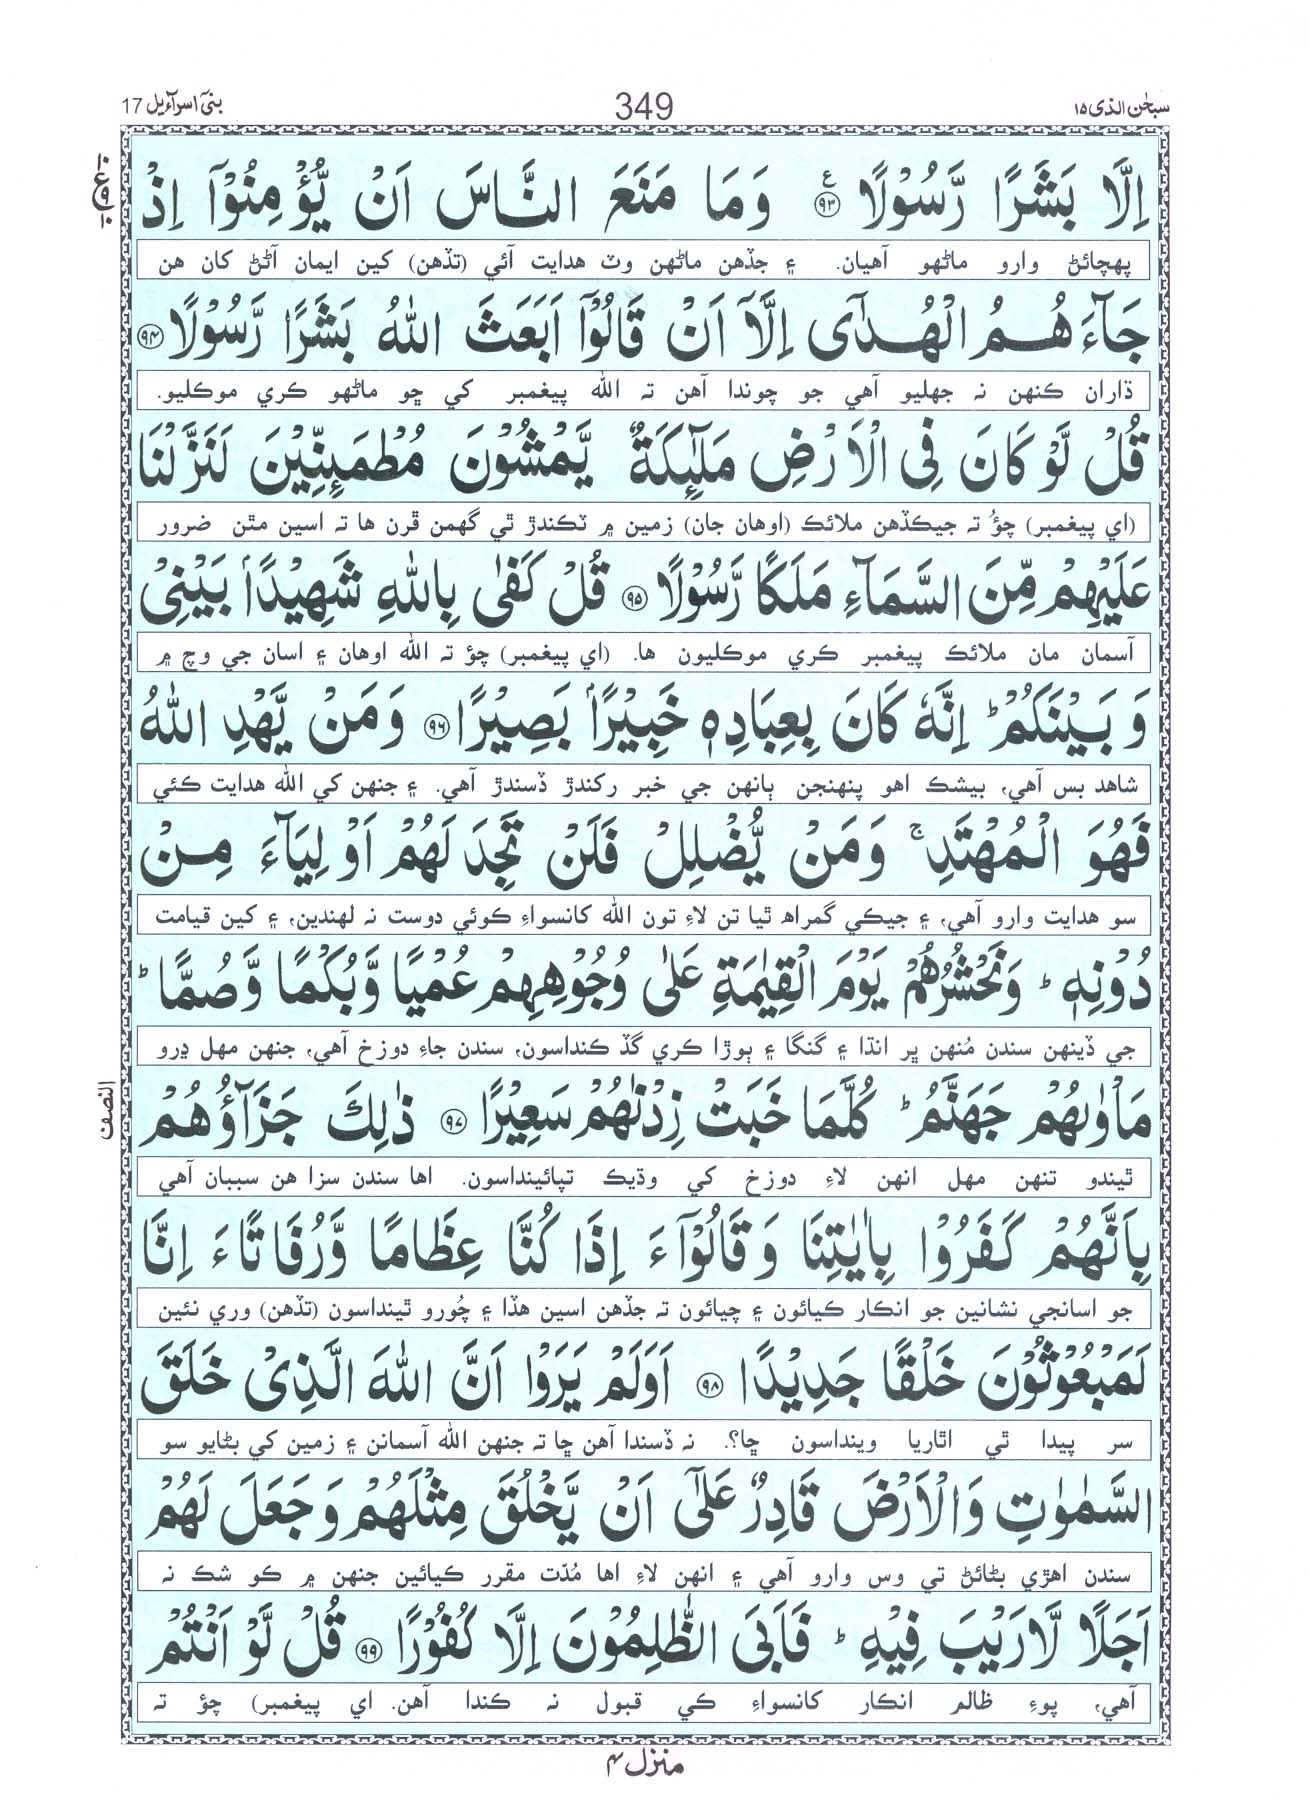 سبحٰن الذی ۱۵
349
بنیٓ اسرآءیل 17
اِلَّا بَشَرًا رَّسُوْلًا ﴿۹۳﴾ ع وَمَا مَنَعَ النَّاسَ اَنْ يُّؤْمِنُوْٓا اِذْ
پهچائڻ وارو ماڻهو آهيان. ۽ جڏهن ماڻهن وٽ هدايت آئي (تڏهن) کين ايمان آڻڻ کان هن
جَآءَهُمُ الْهُدٰٓى اِلَّآ اَنْ قَالُوْٓا اَبَعَثَ اللّٰهُ بَشَرًا رَّسُوْلًا ﴿۹۴﴾
ڌاران ڪنهن نہ جهليو آهي جو چوندا آهن تہ الله پيغمبر کي ڇو ماڻهو ڪري موڪليو.
قُلْ لَّوْ كَانَ فِى الْاَرْضِ مَلٰٓئِكَةٌ يَّمْشُوْنَ مُطْمَئِنِّيْنَ لَنَزَّلْنَا
(اي پيغمبر) چؤ تہ جيڪڏهن ملائڪ (اوهان جان) زمين ۾ ٽڪندڙ ٿي گهمن ڦرن ها تہ اسين مٿن ضرور
عَلَيْهِمْ مِّنَ السَّمَآءِ مَلَكًا رَّسُوْلًا ﴿۹۵﴾ قُلْ كَفٰى بِاللّٰهِ شَهِيْدًاۢ بَيْنِىْ
آسمان مان ملائڪ پيغمبر ڪري موڪليون ها. (اي پيغمبر) چؤ تہ الله اوهان ۽ اسان جي وچ ۾
وَبَيْنَكُمْ ؕ اِنَّهٗ كَانَ بِعِبَادِهٖ خَبِيْرًاۢ بَصِيْرًا ﴿۹۶﴾ وَمَنْ يَّهْدِ اللّٰهُ
شاهد بس آهي، بيشڪ اهو پنهنجن ٻانهن جي خبر رکندڙ ڏسندڙ آهي. ۽ جنهن کي الله هدايت ڪئي
فَهُوَ الْمُهْتَدِ ۚ وَمَنْ يُّضْلِلْ فَلَنْ تَجِدَ لَهُمْ اَوْلِيَآءَ مِنْ
سو هدايت وارو آهي، ۽ جيڪي گمراهه ٿيا تن لاءِ تون الله کانسواءِ ڪوئي دوست نہ لهندين، ۽ کين قيامت
دُوْنِهٖ ؕ وَنَحْشُرُهُمْ يَوْمَ الْقِيٰمَةِ عَلٰى وُجُوْهِهِمْ عُمْيًا وَّبُكْمًا وَّصُمًّا ؕ
جي ڏينهن سندن مُنهن ڀر انڌا ۽ گنگا ۽ ٻوڙا ڪري گڏ ڪنداسون، سندن جاءِ دوزخ آهي، جنهن مهل ڍرو
مَاْوٰىهُمْ جَهَنَّمُ ؕ كُلَّمَا خَبَتْ زِدْنٰهُمْ سَعِيْرًا ﴿۹۷﴾ ذٰلِكَ جَزَآؤُهُمْ
النصف
ٿيندو تنهن مهل انهن لاءِ دوزخ کي وڌيڪ تپائينداسون. اها سندن سزا هن سببان آهي
بِاَنَّهُمْ كَفَرُوْا بِاٰيٰتِنَا وَقَالُوْٓا ءَاِذَا كُنَّا عِظَامًا وَّرُفَاتًا ءَاِنَّا
جو اسانجي نشانين جو انڪار ڪيائون ۽ چيائون تہ جڏهن اسين هڏا ۽ چُورو ٿينداسون (تڏهن) وري نئين
لَمَبْعُوْثُوْنَ خَلْقًا جَدِيْدًا ﴿۹۸﴾ اَوَلَمْ يَرَوْا اَنَّ اللّٰهَ الَّذِىْ خَلَقَ
سر پيدا ٿي اٿاريا وينداسون ڇا؟. نہ ڏسندا آهن ڇا تہ جنهن الله آسمانن ۽ زمين کي بڻايو سو
السَّمٰوٰتِ وَالْاَرْضَ قَادِرٌ عَلٰٓى اَنْ يَّخْلُقَ مِثْلَهُمْ وَجَعَلَ لَهُمْ
سندن اهڙي بڻائڻ تي وس وارو آهي ۽ انهن لاءِ اها مُدّت مقرر ڪيائين جنهن ۾ ڪو شڪ نہ
اَجَلًا لَّا رَيْبَ فِيْهِ ؕ فَاَبَى الظّٰلِمُوْنَ اِلَّا كُفُوْرًا ﴿۹۹﴾ قُلْ لَّوْ اَنْتُمْ
آهي، پوءِ ظالم انڪار کانسواءِ کي قبول نہ ڪندا آهن. اي پيغمبر) چؤ تہ
منزل ۴